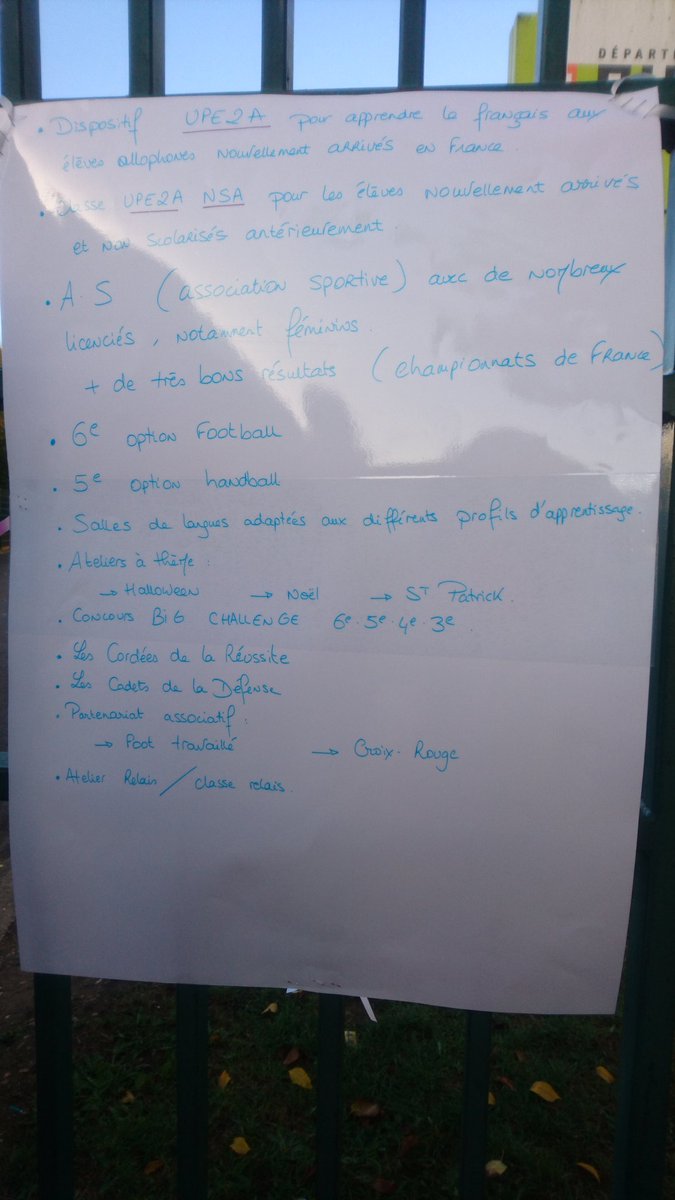 DÉPART
• Dispositif UPE2A pour apprendre le français aux
élèves allophones nouvellement arrivés en France.
• Classe UPE2A NSA pour les élèves nouvellement arrivés
et non scolarisés antérieurement.
• A.S (association sportive) avec de nombreux
licenciés, notamment féminins.
+ de très bons résultats (championnats de France)
• 6e option Football
• 5e option handball
• Salles de langues adaptées aux différents profils d'apprentissage.
• Ateliers à thème :
→ Halloween → Noël → ST Patrick.
• Concours BiG CHALLENGE 6e.5e.4e.3e
• Les Cordées de la Réussite
• Les Cadets de la Défense
• Partenariat associatif :
→ travaillé → Croix-Rouge
• Atelier Relais / classe relais.